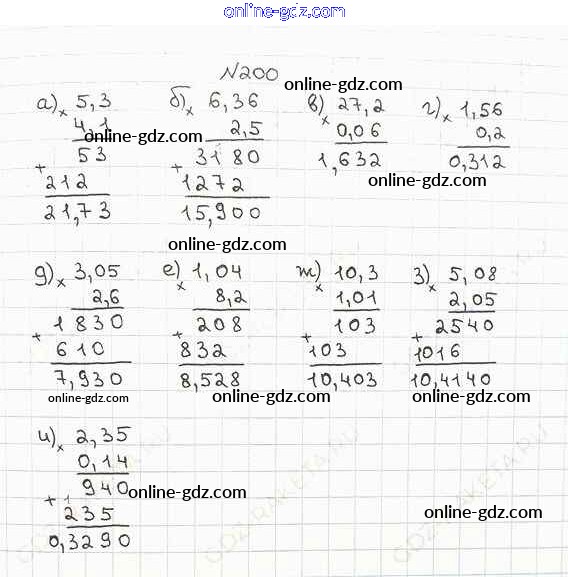 online-gdz.com
№200
online-gdz.com
а) × 5,3 б) × 6,36 в) × 27,2 г) × 1,56
4,1 2,5 0,06 0,2
online-gdz.com
53 3180 1,632 0,312
+ +
212 1272 online-gdz.com
21,73 15,900
online-gdz.com
д) × 3,05 е) × 1,04 ж) × 10,3 з) × 5,08
2,6 8,2 1,01 2,05
1830 208 103 2540
+ + + +
610 832 103 1016
7,930 8,528 10,403 10,4140
online-gdz.com online-gdz.com online-gdz.com
и) × 2,35
0,14
940 online-gdz.com
+ 1
235 online-gdz.com
0,3290
GDZ-RAKETA.RU
GDZ-RAKETA.RU
GDZ-RAKETA.RU